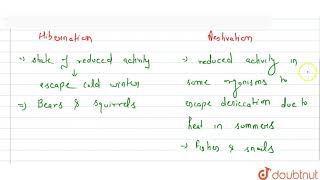 Hibernation
→ state of reduced activity
↓
escape cold winters
⇒ Bears & squirrels
Aestivation
→ reduced activity in
some organisms to
escape desiccation due to
heat in summers
→ Fishes & snails
doubtnut